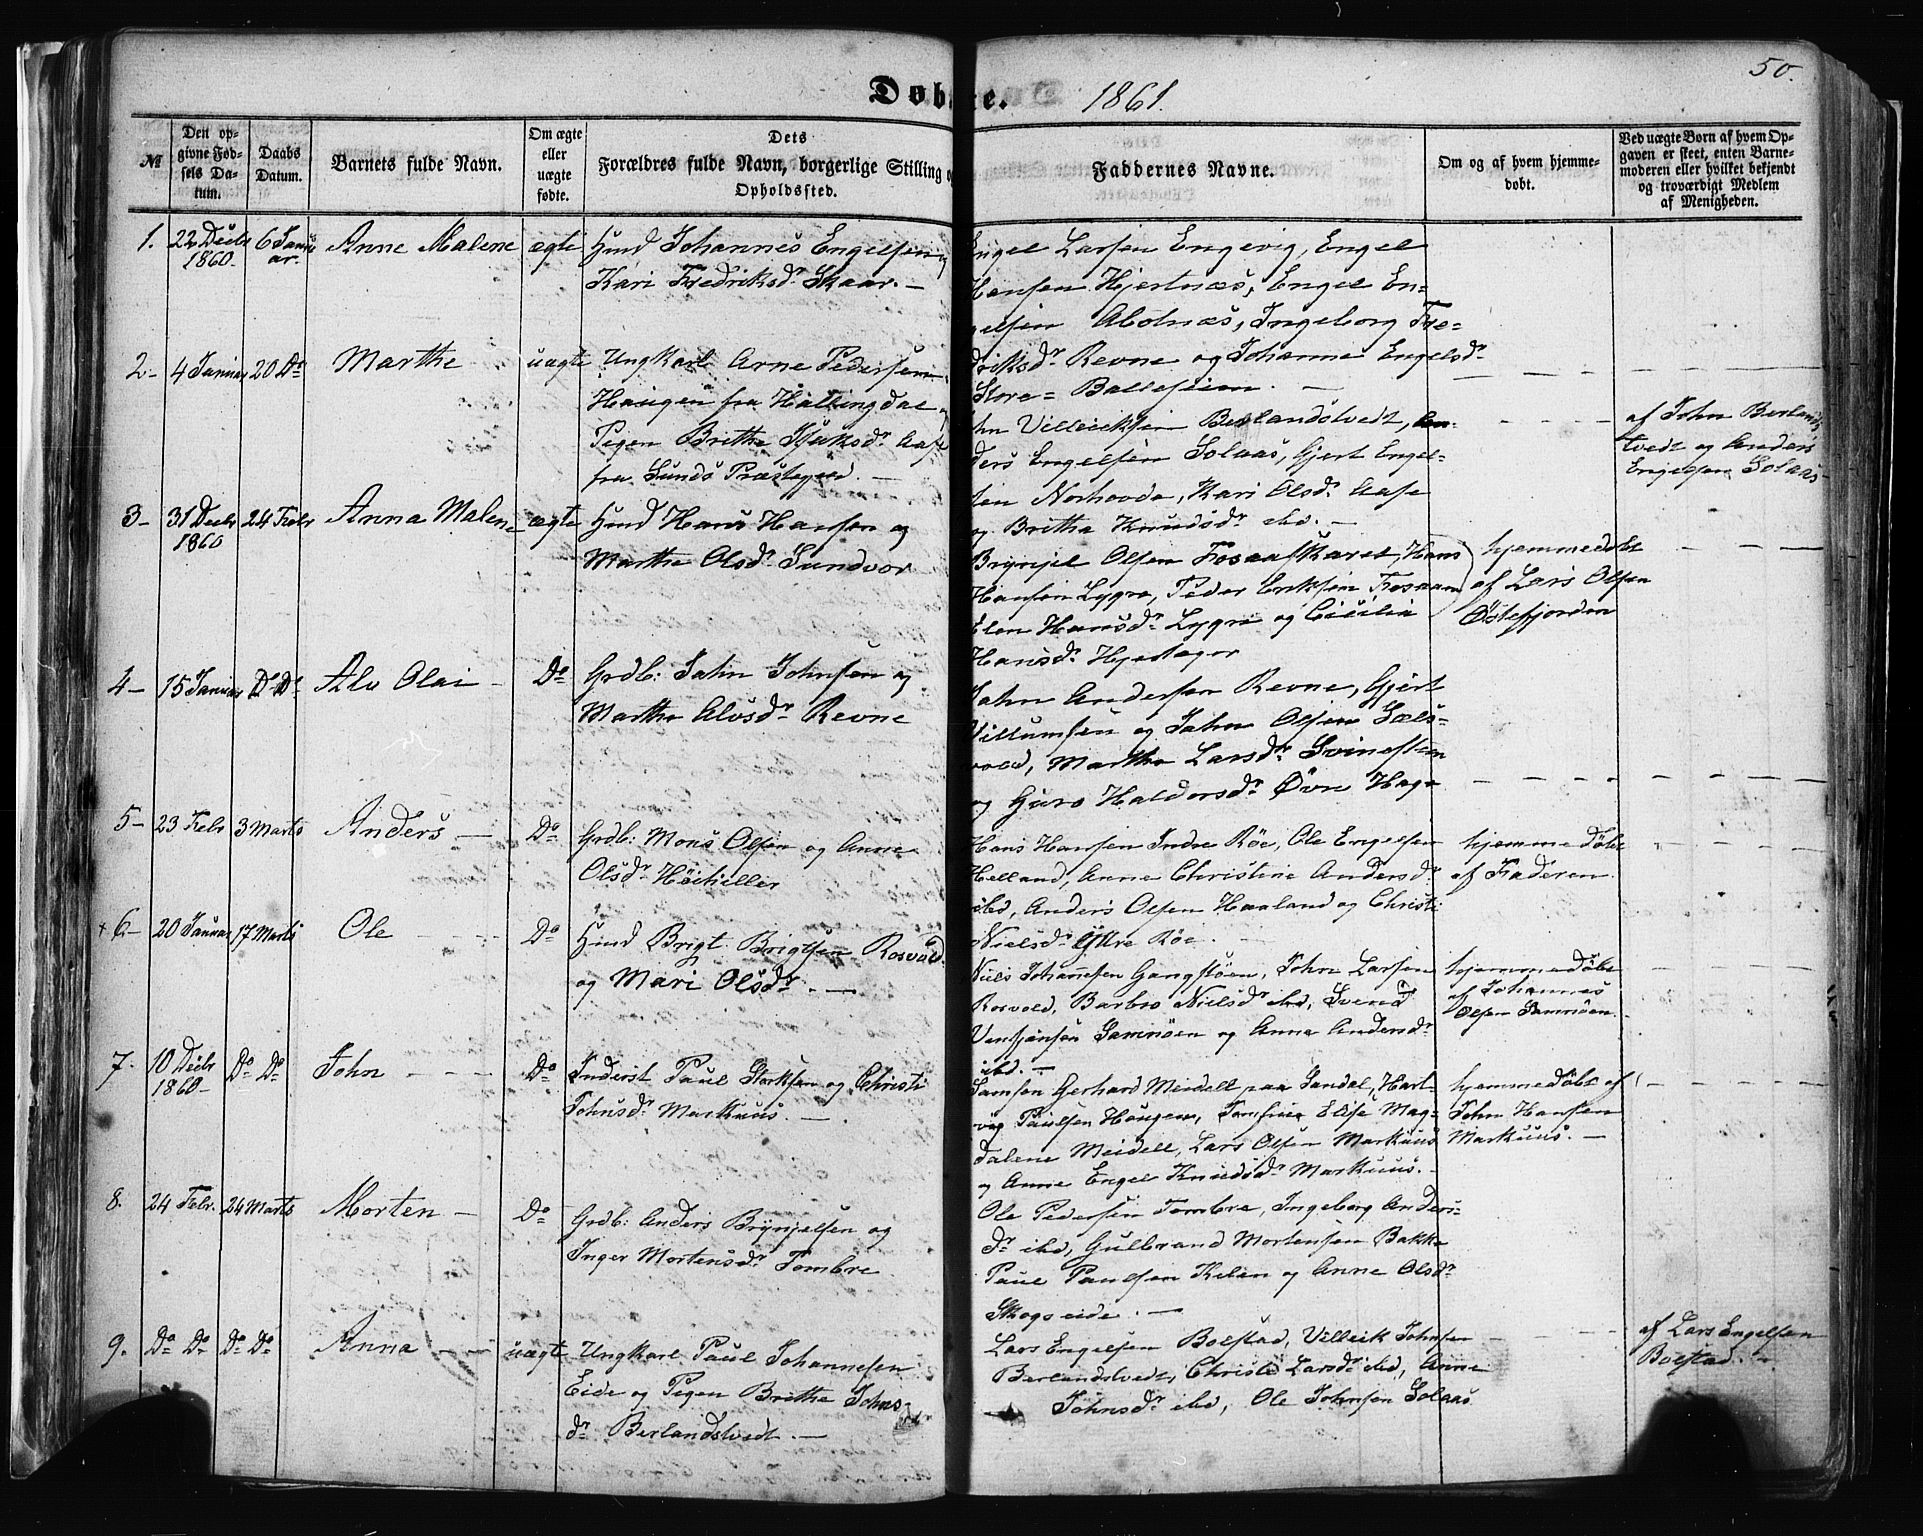 50.
Døbte. 1861.
№
Den op-
givne Fød-
sels Da-
tum.
Daabs
Datum.
Barnets fulde Navn.
Om ægte
eller
uægte
fødte.
Dets
Forældres fulde Navn, borgerlige Stilling
Opholdssted.
Faddernes Navne.
Om og af hvem hjemme-
døbt.
Ved uægte Børn af hvem Op-
gaven er skeet, enten Barne-
moderen eller hvilket bekjendt
og troværdigt Medlem
af Menigheden.
1. 22 Decbr 6 Janu- Anne Malene ægte Hmd Johannes Engelsen og
1860. ar. Kari Fredriksdr Skaar. —
Engel Larsen Engevig, Engel
Hansen Hjertnæs, Engel En-
gelsen Abotnæs, Ingeborg Fre-
driksdr Revne og Johanne Engelsdr
Store- Balleseim. —
2- 4 Januar 20 Do Marthe uægte Ungkarl Arne Pedersen
Haugen fra Hallingdal og
Pigen Brithe Aase
fra Sunds Præstegjed. —
John Villiksen Berlandstvedt, An-
ders Engelsen Solaas, Gjert Engel-
sen Norhovde, Kari Olsdr Aase
og Britha Knudsdr ibd. —
af John Berlands-
tvedt og Anders
Engelsen Solaas-
3- 31 Decbr 24 Febr Anna Malen- ægte Hmd Hans Hansen og
1860 Martha Olsdr Sundvor
Brynjel Olsen Fosaaskaret, Hans
Hansen Lygre, Peder Eriksen Fosaaen
Elen Hansdr Lygre og Cicilia
Hansdr Hjertager
hjemmedøbt
af Lars Olsen
Østefjorden
4- 15 Januar Do Do Alv Olai - Do Grdb: John Johnsen og
Martha Alvsdr Revne
John Andersen Revne, Gjert
Villumsen og John Olsen Sæls-
vold, Martha Larsdr
og Guro Haldorsdr Øvre Haga
5- 23 Febr 3 Marts Anders — Do Grdb: Mons Olsen og Anne
Olsdr
Hans Hansen Indre Røe, Ole Engelsen
Helland, Anne Christine Andersdr
ibd, Anders Olsen Haaland og Christi
Nielsdr Yttre Røe. —
hjemmedøbt
af Faderen.
+ 6- 20 Januar 17 Marts Ole - - - Do Hmd Brigt Brigtsen Rosvold
og Mari Olsdr. —
Niels Johannesen Gangstøen, John Larsen
Rosvold, Barbro Nielsdr ibd, Svend
Samnøen og Anna Andersdr
ibd. —
hjemmedøbt
af Johannes
Olsen Samnøen.
7. 10 Decbr Do Do John - - - Do Inderst Paul Storksen og Christi
1860- Johnsdr Markuus. —
Samson Gerhard Meidell paa Sandal, Hart-
vig Paulsen Haugen, Jomfrue Elise Mag-
dalene Meidell, Lars Olsen Markuus
og Anne Engel Knudsdr Markuus. -
hjemmedøbt af
John Hansen
Markuus. —
8. 24 Febr. 24 Marts Morten - Do Grdb: Anders Brynjelsen og
Inger Mortensdr Tombre
Ole Pedersen Tombre, Ingeborg Anders-
dr ibd, Gulbrand Mortensen Bakke
Paul Paulsen Helen og Anne Olsdr
Skogseide. —
9. Do Do Do Do Anna - - uægte Ungkarl Paul Johannesen
Eide og Pigen Brithe Johns-
dr Berlandstvedt. —
Lars Engelsen Bolstad, Villeik Johnsen
Berlandstvedt, Christi Larsdr ibd, Anne
Johnsdr ibd, Ole Johnsen Solaas
af Lars Engelsen
Bolstad. -